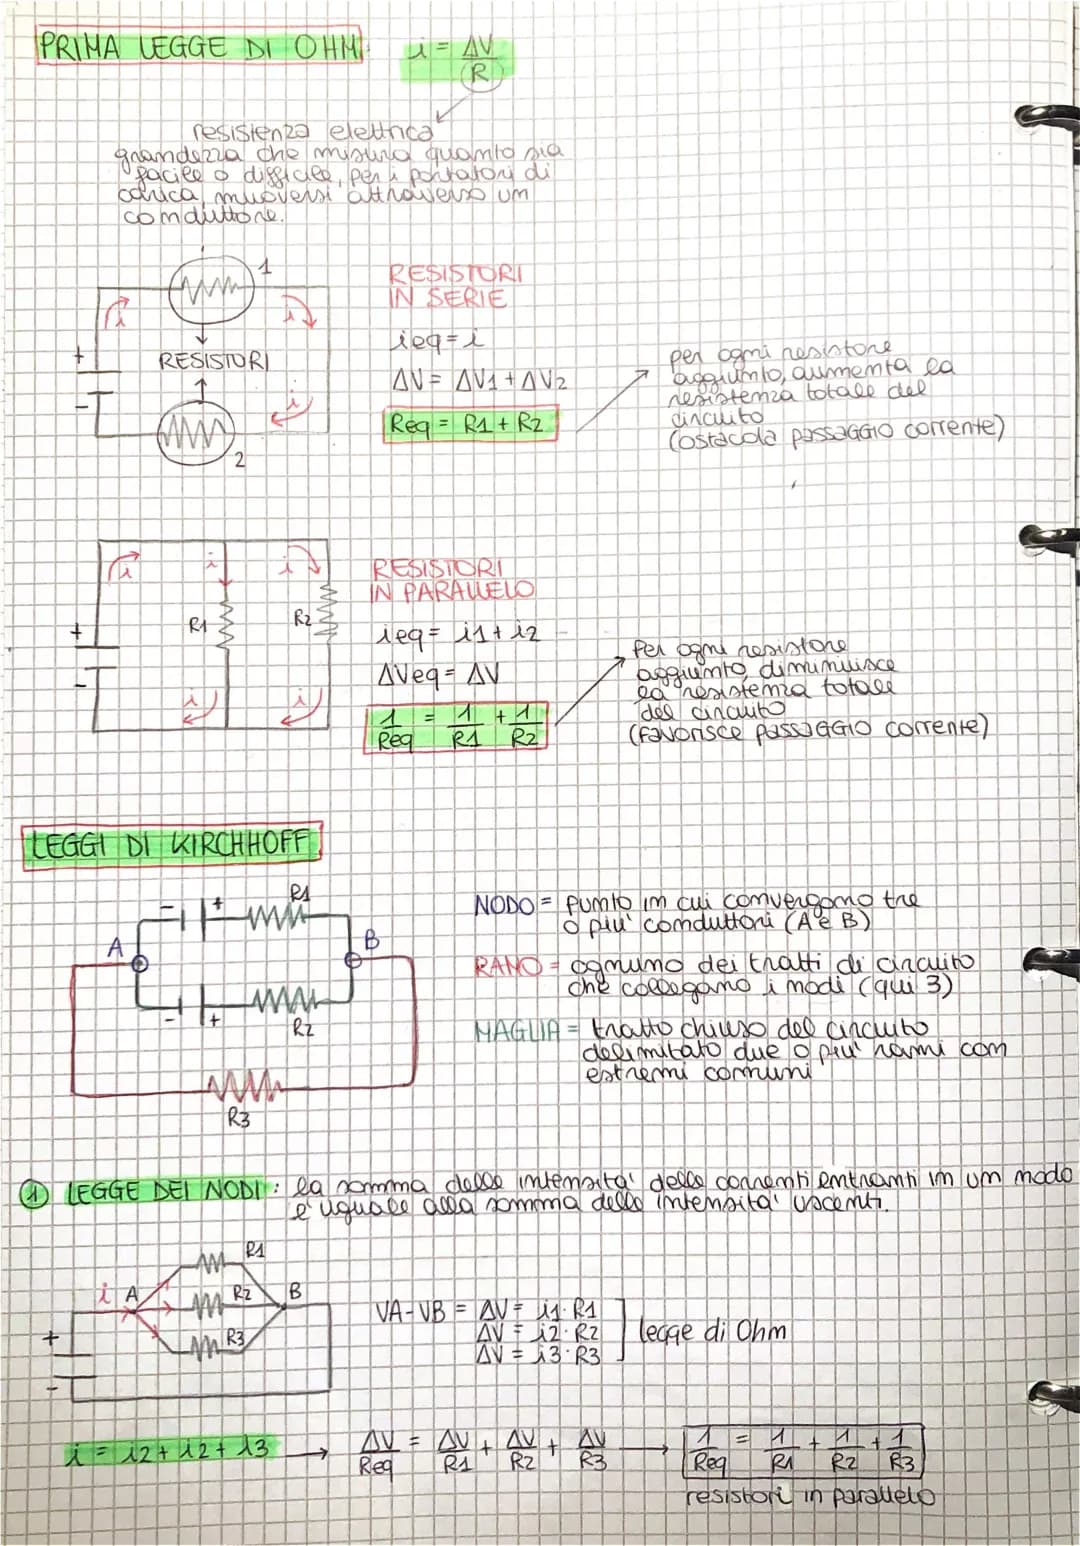 PRIMA LEGGE DI OHM. i = ΔV/R
resistenza elettrica
grandezza che misura quanto sia
facile o difficile, per i portatori di
carica, muoversi attraverso un
conduttore.
1
RESISTORI
IN SERIE
i
i
+
RESISTORI
-
i
2
ieq = i
ΔV = ΔV1 + ΔV2
Req = R1 + R2
per ogni resistore
aggiunto, aumenta la
resistenza totale del
circuito
(ostacola passaggio corrente)
i
i
i
R1
R2
+
-
i
i
RESISTORI
IN PARALLELO
ieq = i1 + i2
ΔVeq = ΔV
1/Req = 1/R1 + 1/R2
Per ogni resistore
aggiunto, diminuisce
la resistenza totale
del circuito
(favorisce passaggio corrente)
LEGGI DI KIRCHHOFF
- + R1
A
B
- + R2
R3
NODO = punto in cui convergono tre
o piu' conduttori (A e B)
RAMO = ognuno dei tratti di circuito
che collegano i nodi (qui 3)
MAGLIA = tratto chiuso del circuito
delimitato due o piu' rami con
estremi comuni
1 LEGGE DEI NODI: la somma delle intensita' delle correnti entranti in un nodo
e' uguale alla somma delle intensita' uscenti.
R1
i A R2 B
R3
+
-
VA-VB = ΔV = i1·R1
ΔV = i2·R2
ΔV = i3·R3
legge di Ohm
i = i2 + i2 + i3 → ΔV/Req = ΔV/R1 + ΔV/R2 + ΔV/R3 → 1/Req = 1/R1 + 1/R2 + 1/R3
resistori in parallelo